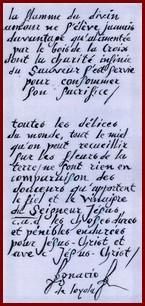 la flamme du divin
amour ne s'élève jamais
davantage qu'alimentée
par le bois de la Croix
dont la charité infinie
du Sauveur s'est servie
pour consommer
son Sacrifice
toutes les délices
du monde, tout le miel
qu'on peut recueillir
sur les fleurs de la
terre, ne sont rien en
comparaison des
douceurs qu'apportent
le fiel et le vinaigre
du Seigneur Jésus,
c.à.d. les choses dures
et pénibles endurées
pour Jésus-Christ et
avec Jésus-Christ
Ignacio
de Loyola